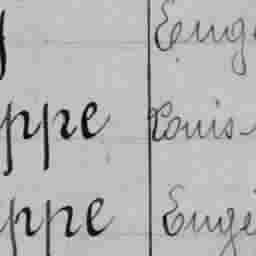 Eug
ppe Louis
ppe Eugé